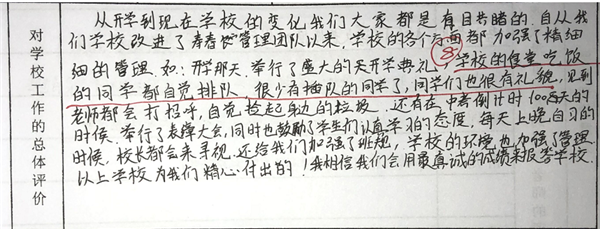 对学校工作的总体评价
从开学到现在学校的变化我们大家都是有目共睹的.自从我
们学校改进了青春管理团队以来,学校的各个方面都加强了精细
细的管理.如:开学那天,举行了盛大的天开学典礼,⑧学校的食堂吃饭
的同学都自觉排队,很少有插队的同学了,同学们也很有礼貌,见到
老师都会打招呼,自觉捡起身边的垃圾.还有在中考倒计时100天的
时候,举行了表彰大会,同时也鼓励了学生们认真学习的态度,每天上晚自习的
时候,校长都会来寻视.还给我们加强了班规,学校的环境也加强了管理
以上学校为我们精心付出的!我相信我们会用最真诚的成绩来报答学校.